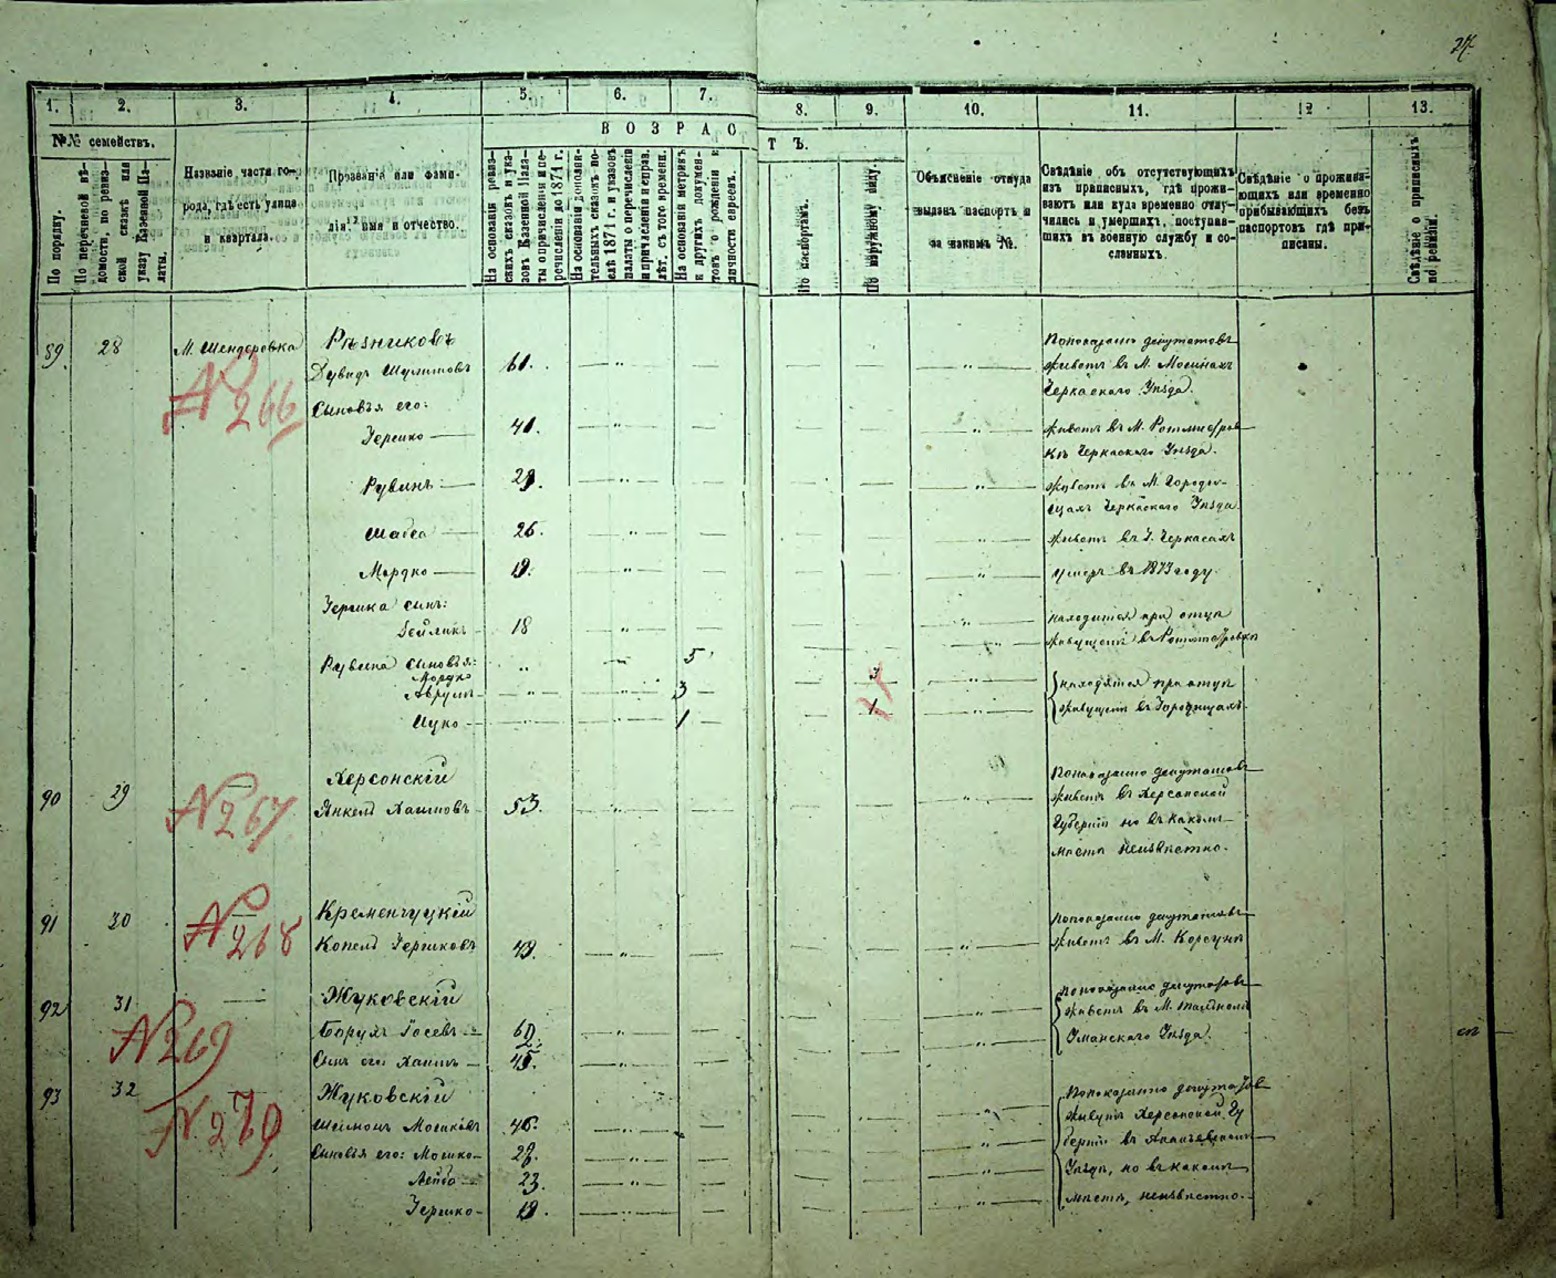 27
1. 2. 3. 4. 5. 6. 7. 8. 9. 10. 11. 12 13.
№№ семействъ.
ВОЗРАСТЪ.
По порядку.
По перечневой вѣдомости, по ревизской сказкѣ или указу Казенной Палаты.
Названіе части города, гдѣ есть улица и квартала.
Прозваніе или фамилія, имя и отчество.
На основаніи ревизскихъ сказокъ и указовъ Казенной Палаты о причисленіи и перечисленіи до 1871 г.
На основаніи дополнительныхъ сказокъ послѣ 1871 г. и указовъ палаты о перечисленіи и причисленіи и справ. лѣт. съ того времени.
На основаніи метрикъ и другихъ документовъ о рожденіи и личности евреевъ.
По паспортамъ.
По наружному виду.
Объясненіе откуда выданъ паспортъ и за какимъ №.
Свѣдѣніе объ отсутствующихъ изъ приписныхъ, гдѣ проживаютъ или куда временно отлучились и умершихъ, поступившихъ въ военную службу и сосланныхъ.
Свѣдѣніе о проживающихъ или временно прибывающихъ безъ паспортовъ гдѣ приписаны.
Свѣдѣніе о приписныхъ по ревизіи.
89. 28 М. Шендеровка Рѣзниковъ Попоказанію депутатовъ
Дувидъ Шулимовъ 61. живетъ въ М. Мошнахъ
№ 266 Черкаскаго Уѣзда.
Сыновья его:
Гершко 41. живетъ въ М. Ротмистров-
кѣ Черкаскаго Уѣзда.
Рувинъ 29. живетъ въ М. Городи-
щахъ Черкаскаго Уѣзда
Шабса 26. живетъ въ Г. Черкасахъ
Мордко 19. умеръ въ 1873 году.
Гершка сынъ: находится при отцѣ
Бейликъ 18 живущемъ въ Ротмистровкѣ
Рувина сыновья:
Мордко 5
Аврумъ 3 находятся при отцѣ
Ицко 1 1 живущемъ въ Городищахъ.
90 29 № 267 Херсонскій Попоказанію депутатовъ
Янкель Хаимовъ 53. живетъ въ Херсонской
Губерніи но въ какомъ
мѣстѣ неизвѣстно.
91 30 № 268 Кременчуцкій Попоказанію депутатовъ
Копель Гершковъ 49. живетъ въ М. Корсунѣ
92 31 № 269 Жуковскій Попоказанію депутатовъ
Борухъ Іосевъ живетъ въ М. Тальномъ
Сынъ его Хаимъ 45. Уманскаго Уѣзда.
93 32 № 270 Жуковскій Попоказанію депутатовъ
Шлиомъ Мошковъ 46. живутъ Херсонской Гу
Сыновья его: Мошко 27. берніи въ Ананьевскомъ
Лейба 23. Уѣздѣ, но въ какомъ
Гершко 19. мѣстѣ, неизвѣстно.